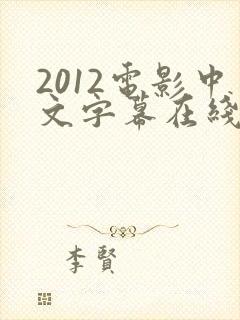 2012電影中
文字幕在綫
李賢